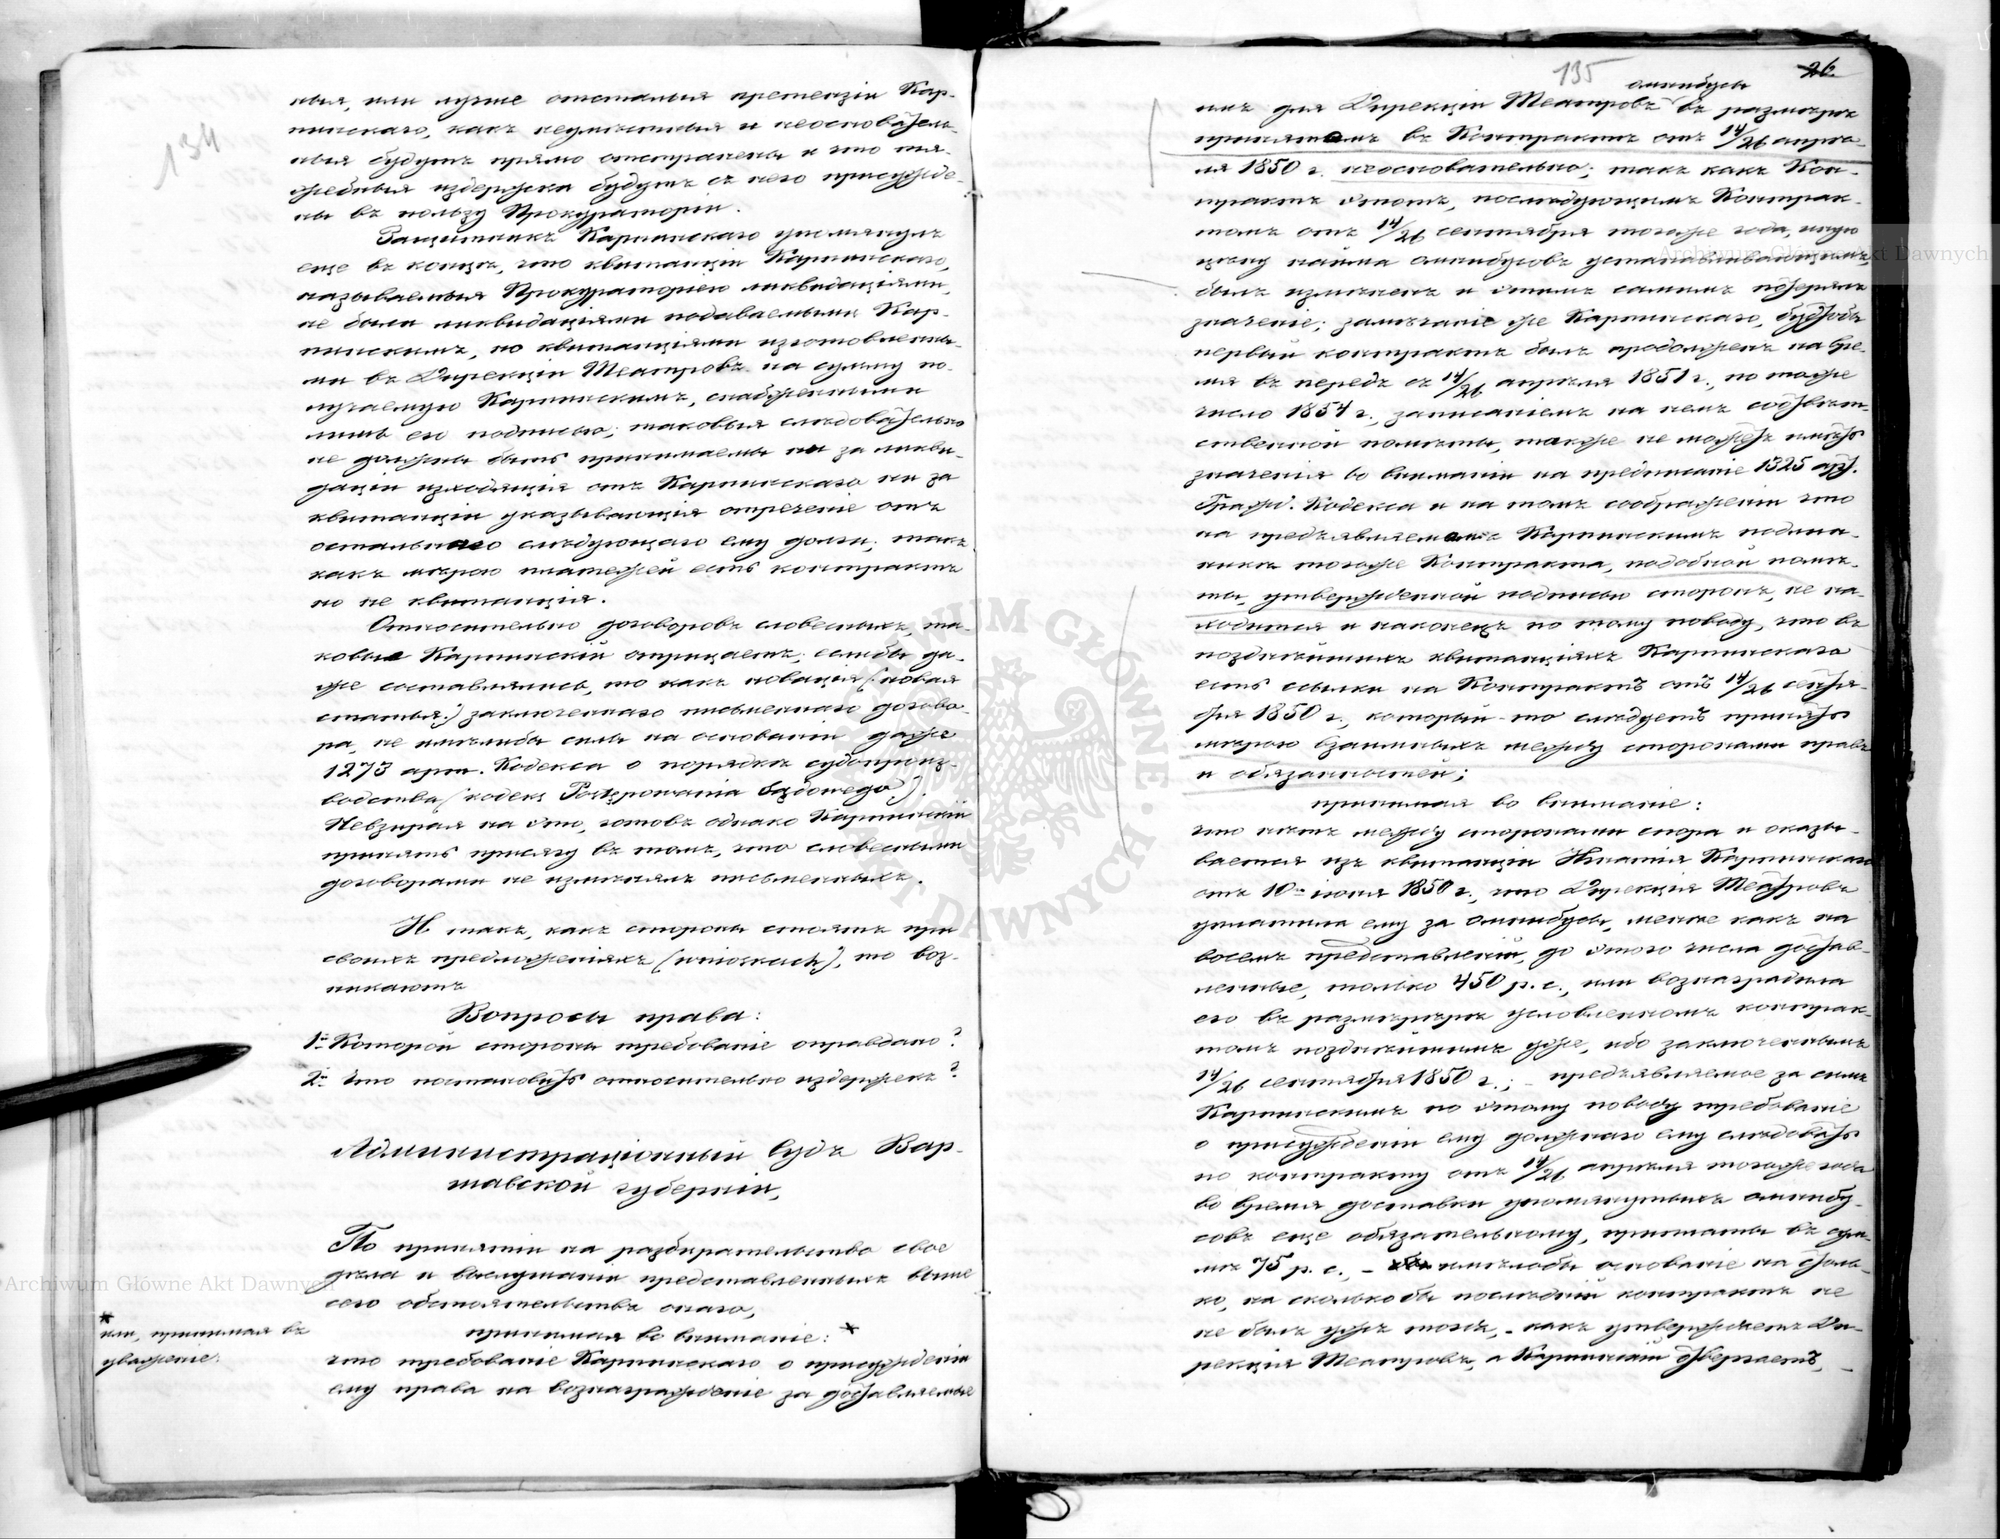 134
ныя, или лучше отсталыя претензіи Кар-
пинскаго, какъ неумѣстныя и неосновател-
ныя будутъ прямо отстранены и что тя-
жебныя издержки будутъ съ него присужде-
ны въ пользу Прокураторіи.
Защитникъ Карпинскаго упомянулъ
еще въ концѣ, что квитанціи Карпинскаго,
называемыя Прокураторіею ликвидаціями,
не были ликвидаціями подаваемыми Кар-
пинскимъ, но квитанціями изготовленны-
ми въ Дирекціи Театровъ на сумму по-
лучаемую Карпинскимъ, снабженными
лишь его подписью; таковыя слѣдовательно
не должны быть принимаемы ни за ликви-
даціи изходящія отъ Карпинскаго ни за
квитанціи указывающія отреченіе отъ
остальнаго слѣдующаго ему долга; такъ
какъ мѣрою платежей есть контрактъ
но не квитанція.
Относительно договоровъ словесныхъ, та-
ковые Карпинскій отрицаетъ; еслибы да-
же составлялись, то какъ новація (новая
статья) заключеннаго письменнаго догово-
ра, не имѣлибы силы на основаніи даже
1273 арт. Кодекса о порядкѣ судопроиз-
водства (кодекс Postępowania Sądowego).
Невзирая на это, готовъ однако Карпинскій
принять присягу въ томъ, что словесными
договорами не измѣнялъ письменныхъ.
И такъ, какъ стороны стоятъ при
своихъ предложеніяхъ (wnioskach), то воз-
никаютъ
Вопросы права:
1.- Которой стороны требованіе оправдано?
2.- Что постановить относительно издержекъ?
Администраціонный Судъ Вар-
шавской губерніи,
По принятіи на разбирательство свое
дѣла и выслушаніи представленныхъ выше
сего обстоятельствъ онаго,
принимая во вниманіе: *
что требованіе Карпинскаго о присужденіи
ему права на вознагражденіе за доставляемые
*
или, принимая въ
уваженіе:
135
26
омнибусы
имъ для Дирекціи Театровъ въ размѣрѣ
принятомъ въ Контрактѣ отъ 14/26 апрѣ-
ля 1850 г. неосновательно; такъ какъ Кон-
трактъ этотъ, послѣдующимъ Контрак-
томъ отъ 14/26 сентября тогоже года, иную
цѣну найма омнибусовъ устанавливающимъ,
былъ измѣненъ и этимъ самымъ потерялъ
значеніе; замѣчаніе же Карпинскаго, будтобы
первый контрактъ былъ продолженъ на вре-
мя въ передъ съ 14/26 апрѣля 1851 г., по тоже
число 1854 г., записаніемъ на немъ соотвѣт-
ственной помѣты, также не можетъ имѣть
значенія во вниманіи на предписаніе 1325 арт.
Гражд. Кодекса и на томъ соображеніи что
на предъявляемомъ Карпинскимъ подлин-
никѣ тогоже Контракта, подобной помѣ-
ты, утвержденной подписью сторонъ, не на-
ходится и наконецъ по тому поводу, что въ
позднѣйшихъ квитанціяхъ Карпинскаго
есть ссылки на Контрактъ отъ 14/26 сентя-
бря 1850 г., который-то слѣдуетъ принять
мѣрою взаимныхъ между сторонами правъ
и обязанностей;
принимая во вниманіе:
что нѣтъ между сторонами спора и оказы-
вается изъ квитанціи Игнатія Карпинскаго
отъ 10-іюня 1850 г., что Дирекція Театровъ
уплатила ему за омнибусы, менѣе какъ на
восемь представленій, до этого числа достав-
ленные, только 450 р. с., или вознаградила
его въ размѣрѣ условленномъ контрак-
томъ позднѣйшимъ уже, ибо заключеннымъ
14/26 сентября 1850 г.; - предъявляемое за симъ
Карпинскимъ по этому поводу требованіе
о присужденіи ему должнаго ему слѣдовать
по контракту отъ 14/26 апрѣля тогоже года
во время доставки упомянутыхъ омнибу-
совъ еще обязательному, приплаты въ сум-
мѣ 75 р. с., - имѣлобы основаніе на столь-
ко, на сколькобы послѣдній контрактъ не
не былъ уже тотъ, - какъ утверждаетъ Ди-
рекція Театровъ, а Карпинскій отвергаетъ, -